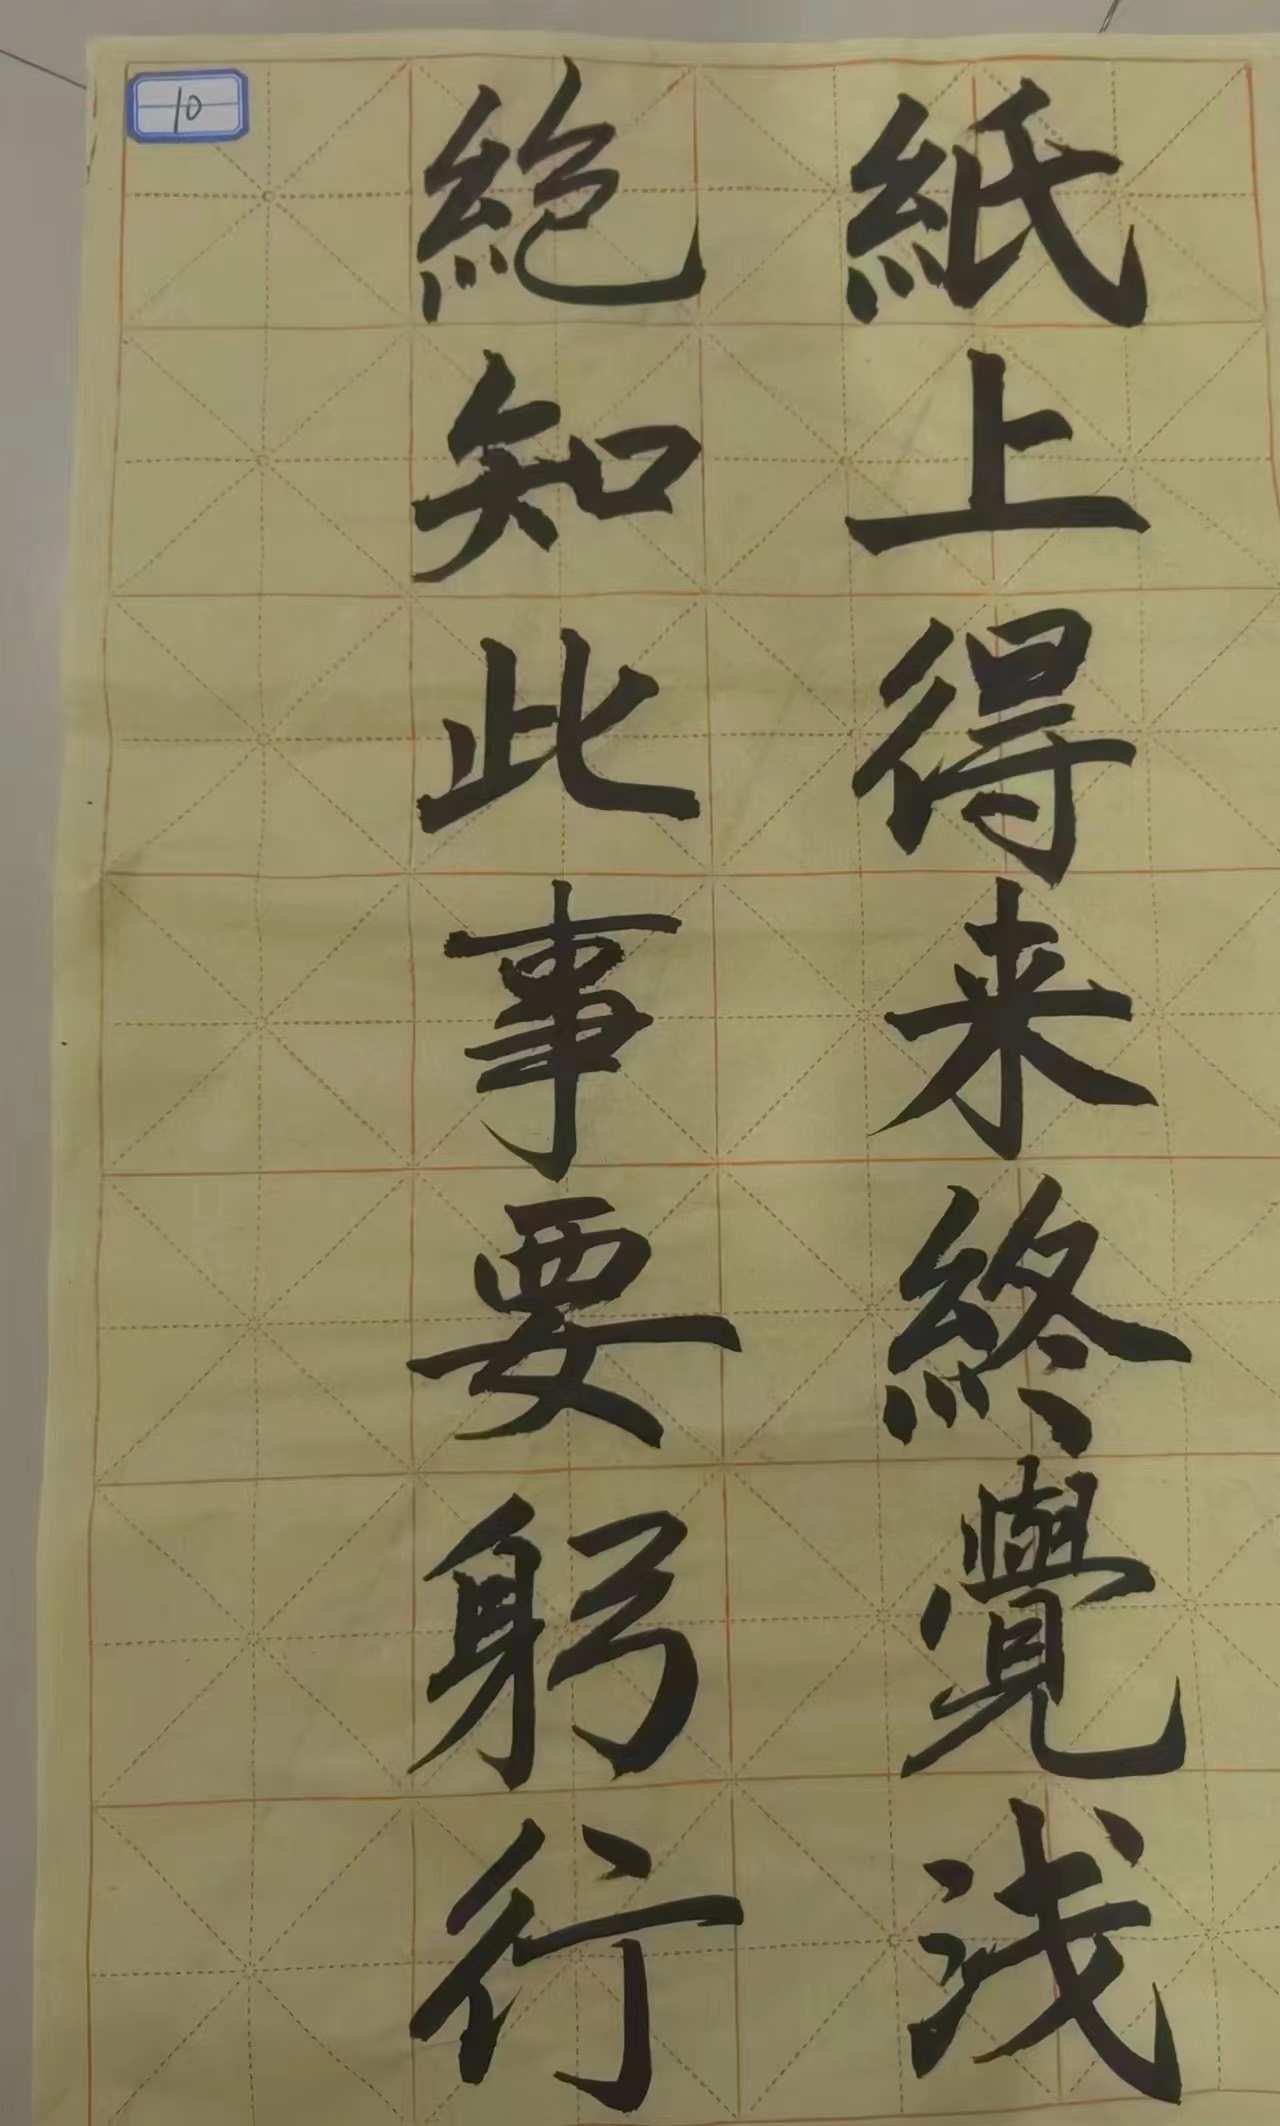 紙上得来終覺浅
絶知此事要躬行
10